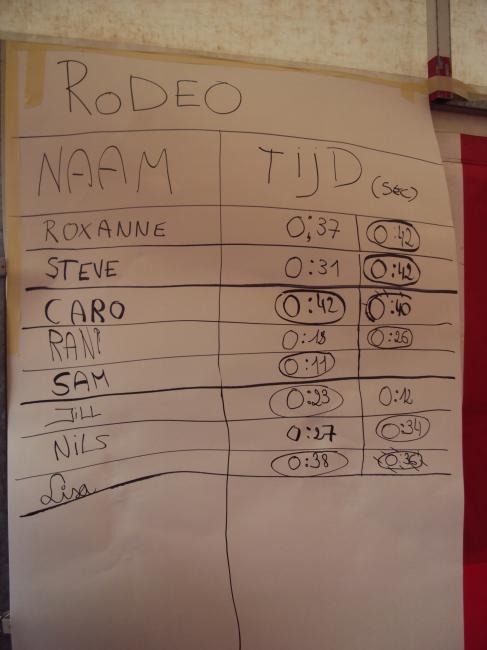 RODEO
NAAM TIJD (sec)
ROXANNE 0:37 0:42
STEVE 0:31 0:42
CARO 0:42 0:40
RANI 0:18 0:26
SAM 0:11
JILL 0:23 0:12
NILS 0:27 0:34
Lisa 0:38 0:36